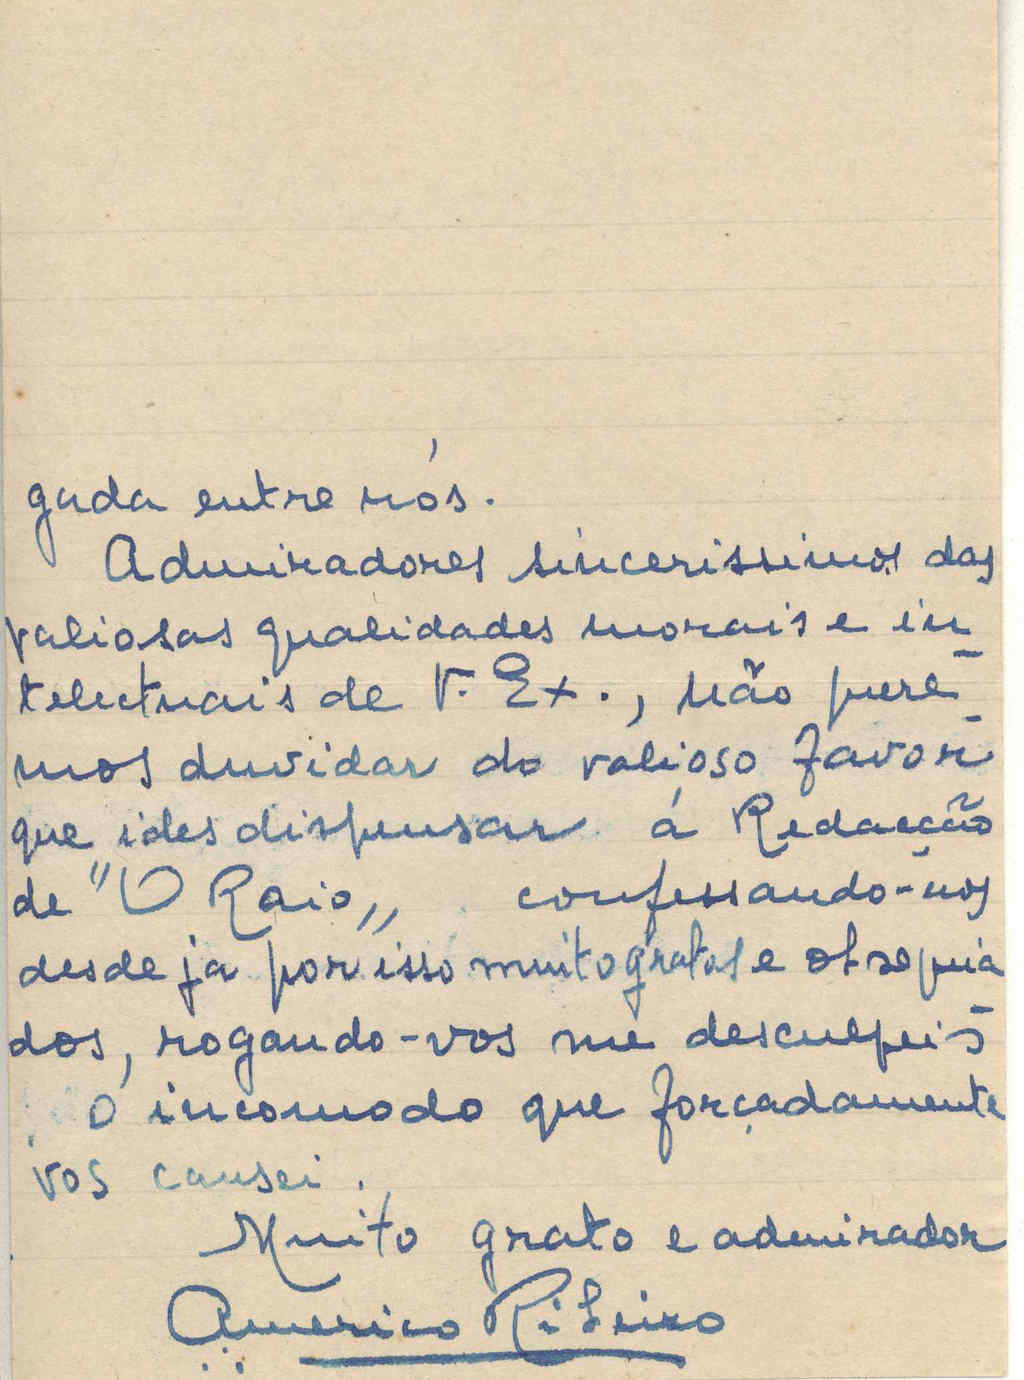 gada entre nós.
Admiradores sincerissimos das
valiosas qualidades morais e in-
telectuais de V. Ex., não quere-
mos duvidar do valioso favor
que ides dispensar á Redacção
de "O Raio„ confessando-nos
desde já por isso muito gratos e obsequia-
dos, rogando-vos me desculpeis
o incomodo que forçadamente
vos causei.
Muito grato e admirador
Americo Ribeiro